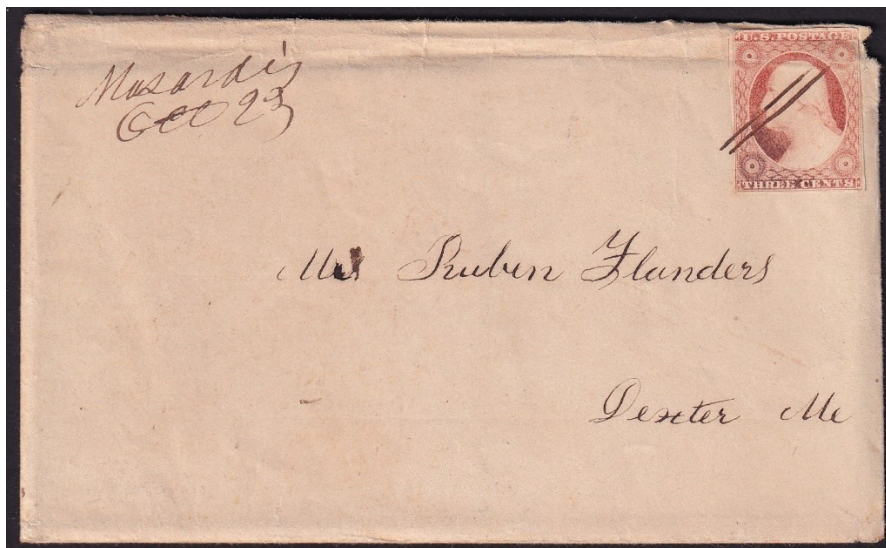 Masardis
Oct 23
U.S. POSTAGE
THREE CENTS
Ruben Flanders
Dexter Me